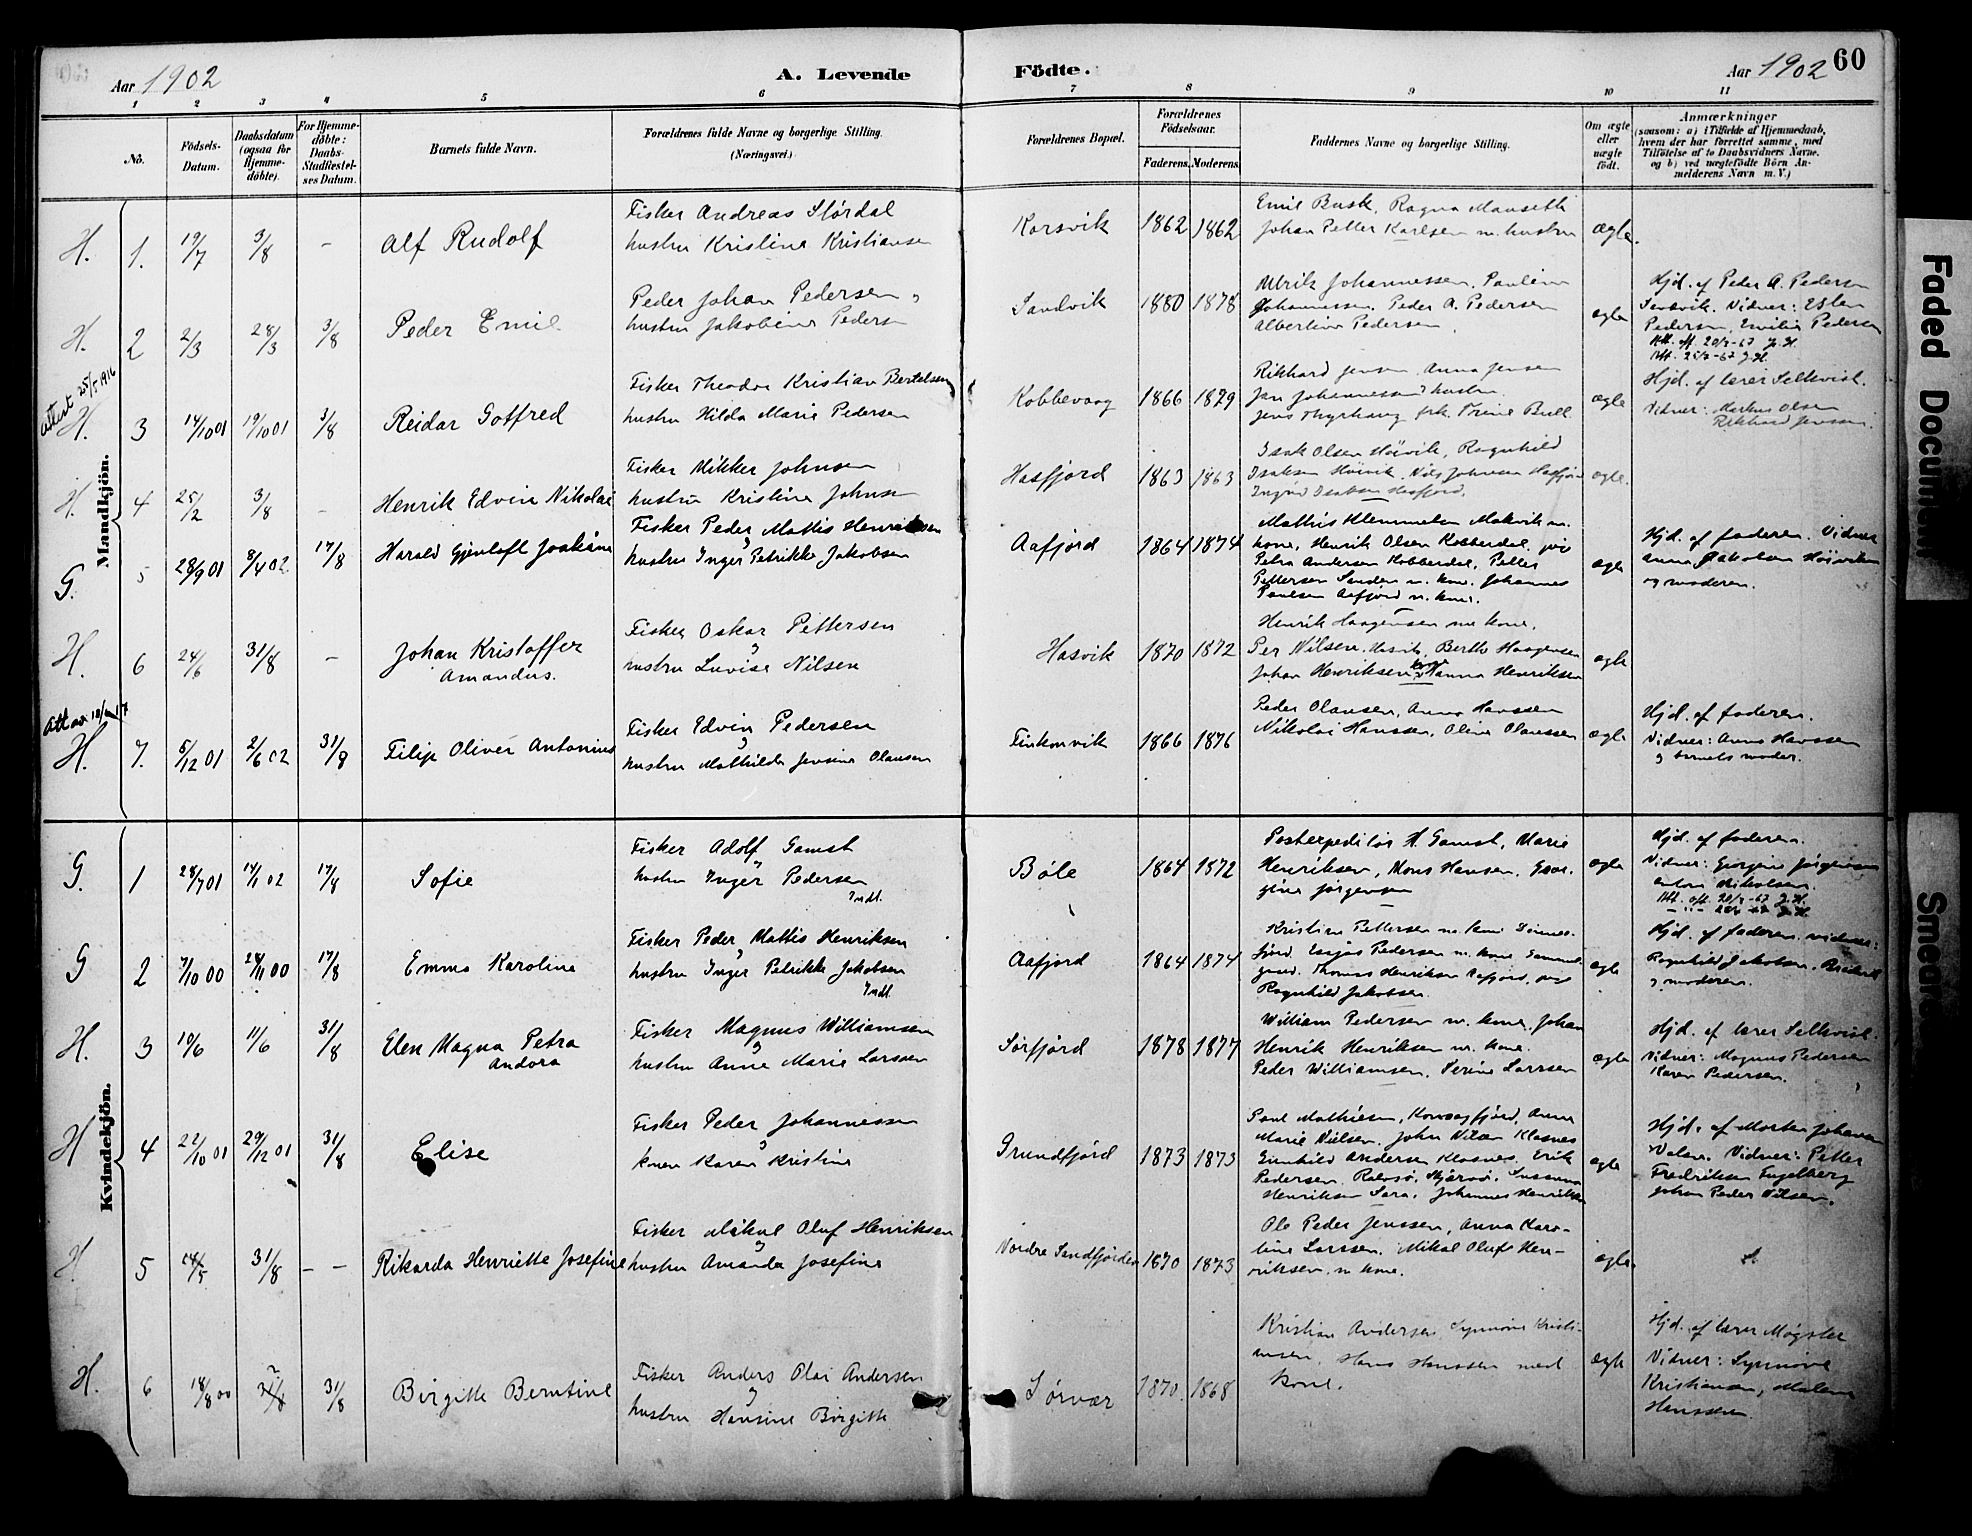 Aar 1902
A. Levende
Födte.
Aar 1902
60
1 2 3 4 5 6 7 8 9 10 11
No.
Födsels-
Datum.
Daabsdatum
(ogsaa for
Hjemme-
döbte).
For Hjemme-
döbte:
Daabs-
Stadfæstel-
ses Datum.
Barnets fulde Navn.
Forældrenes fulde Navne og borgerlige Stilling.
(Næringsvei.)
Forældrenes Bopæl.
Forældrenes
Födselsaar.
Faderens. Moderens.
Faddernes Navne og borgerlige Stilling.
Om ægte
eller
uægte
födt.
Anmærkninger
(saasom: a) i Tilfælde af Hjemmedaab,
hvem der har forrettet samme, med
Tilföielse af to Daabsvidners Navne,
og b) ved uægtefödte Börn An-
melderens Navn m. V.)
Mandkjön.
H. 1. 19/7 3/8 - Alf Rudolf
Fisker Andreas Størdal
hustru Kristine Kristiansen
Korsvik 1862 1862
Emil Busk, Ragna Mauseth
Johan Petter Karlsen m. hustru
ægte.
H. 2 2/3 28/3 3/8 Peder Emil
Peder Johan Pedersen
hustru Jakobine Peders
Sandvik 1880 1878
Ulrik Johannessen, Pauline
Johannessen, Peder A. Pedersen
Albertine Pedersen.
ægte
Hjd. af Peder A. Pedersen
Sandvik. Vidner:
Pedersen, Emilie Pedersen
Att. off. 20/2-67 J.H.
Att. 25/2-67 J.H.
Attest 25/5 1916
H. 3 14/10 01 19/10 01 3/8 Reidar Gotfred
Fisker Theodor Kristian Bertelsen
hustru Hilda Marie Pedersen
Kobbevaag 1866 1879
Rikhard Jensen, Anna Jensen
Jan Johannessen hustru
Jens Thyrhaug frk. Trine Bull
ægte
Hjd. af lærer Selkvist.
Vidner: Markus Olsen
Rikhard Jenssen.
H. 4 25/2 3/8 - Henrik Edvin Nikolai
Fisker Mikker Johnsen
hustru Kristine Johns
Hasfjord 1863 1863
Isak Olsen Høivik, Ragnhild
Isaksen Høivik, Nils Johnsen Hasfjord
Ingrid Isaksen Hasfjord.
ægte.
G. 5 28/9 01 8/4 02 17/8 Harald Gjenloft Joakim
Fisker Peder Mathis Henriksen
hustru Inger Petrikke Jakobsen
Aafjord 1864 1874
Mathis Klemmetsen Makvik m.
kone, Henrik Olsen Kobberdal,
Petra Andersen Kobberdal, Petter
Pettersen Sanden m. kone. Johannes
Paulsen Aafjord m. kone.
ægte
Hjd. af faderen. Vidner
Anna Jakobsen Høiviken
og moderen.
H. 6 24/6 31/8 - Johan Kristoffer
Amandus.
Fisker Oskar Pettersen
hustru Lovise Nilsen
Hasvik 1870 1872
Henrik Haagensen m kone.
Per Nilsen, Hasvik, Berthe Haagensen
Johan Henriksen Hanna Henriksen
ægte
H. 7. 5/12 01 2/6 02 31/8 Filip Oliver Antonius
Fisker Edvin Pedersen
hustru Mathilde Jensine Olausen
Finkonvik 1866 1876
Peder Olausen, Anna Hanssen
Nikolai Hanssen, Oline Olaussen
ægte
Hjd. af faderen.
Vidner: Anna Hanssen
og barnets moder.
Kvindekjön.
G. 1 28/7 01 14/1 02 17/8 Sofie
Fisker Adolf Gamst
hustru Inger Pedersen
Indl.
Bøle 1864 1872
Postexpeditør H. Gamst, Marie
Henriksen, Mons Hansen, Geor-
gine Jørgensen
ægte
Hjd. af faderen.
Vidner: Georgine Jørgensen
Anton Mikelsen.
Att. off. 20/2-67 J.H.
G 2 7/10 00 24/11 00 17/8 Emma Karoline
Fisker Peder Mathis Henriksen
hustru Inger Petrikke Jakobsen
Indl.
Aafjord 1864 1874
Kristian Pettersen m. kone
fjord. Esajas Pedersen m. kone
Thomas Henriksen Aafjord,
Ragnhild Jakobsen.
ægte
Hjd. af faderen. vidner:
Ragnhild Jakobsen,
og moderen.
H. 3 10/6 11/6 31/8 Elen Magna Petra
Andora
Fisker Magnus Williamsen
hustru Anne Marie Larssen
Sørfjord 1878 1877
William Pedersen m. kone, Johan
Henrik Henriksen m. kone.
Peder Williamsen, Perine Larssen
ægte
Hjd. af lærer Selkvist.
Vidner: Magnus Pedersen
Karen Pedersen.
H 4 22/10 01 29/12 01 31/8 Elise
Fisker Peder Johannessen
konen Karen Kristine
Grundfjord 1873 1873
Paul Mathisen, Anne
Marie Nielsen, John Klosnes
Gunhild Andersen Klosnes, Erik
Pedersen, Susanna
Henriksen Sara, Johannes Henriksen
ægte
Hjd. af Morten Johansen
Valan. Vidner: Petter
Fredriksen Engelberg
Johan Peder Nilsen.
H. 5 31/8 - - Rikarda Henriette Josefine
Fisker Mikal Oluf Henriksen
hustru Amanda Josefine
Nordre Sandfjorden 1870 1873
Ole Peder Jenssen, Anna Karo-
line Larssen. Mikal Oluf Hen-
riksen m kone.
ægte.
H. 6 18/8 00 31/8 Birgitte Berntine
Fisker Anders Olai Andersen
hustru Hansine Birgitte
Sørvær 1870. 1868
Kristian Andersen, Synnøve Kristi-
ansen, Hans Hanssen med
kone.
ægte
Hjd. af lærer Møgster
Vidner: Synnøve
Kristiansen, Malene
Hanssen.
Faded Document
Smeared